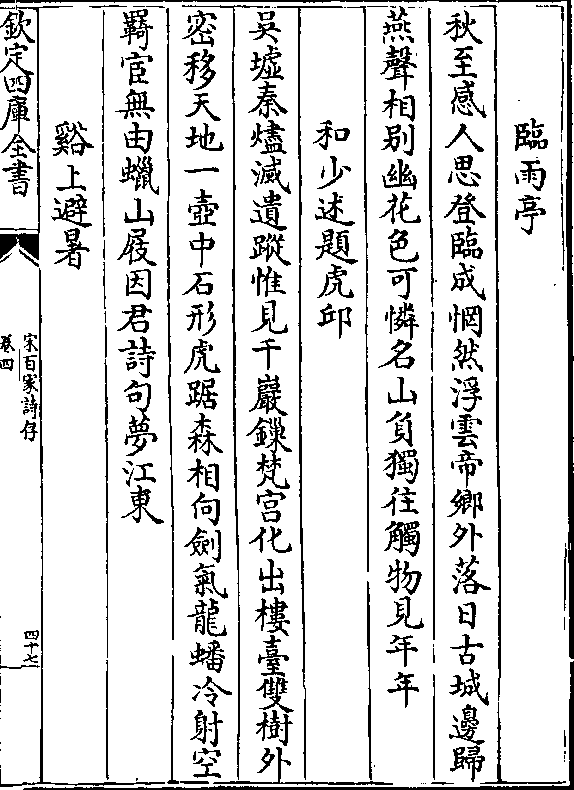 臨雨亭
秋至感人思登臨成惘然浮雲帝鄉外落日古城邊歸
燕聲相别幽花色可憐名山負獨往觸物見年年
和少述題虎邱
吳墟秦燼滅遺蹤惟見千巖鏁梵宫化出樓臺雙樹外
密移天地一壺中石形虎踞森相向劍氣龍蟠冷射空
羇宦無由蠟山屐因君詩句夢江東
谿上避暑
欽定四庫全書
宋百家詩存
卷四
四十七